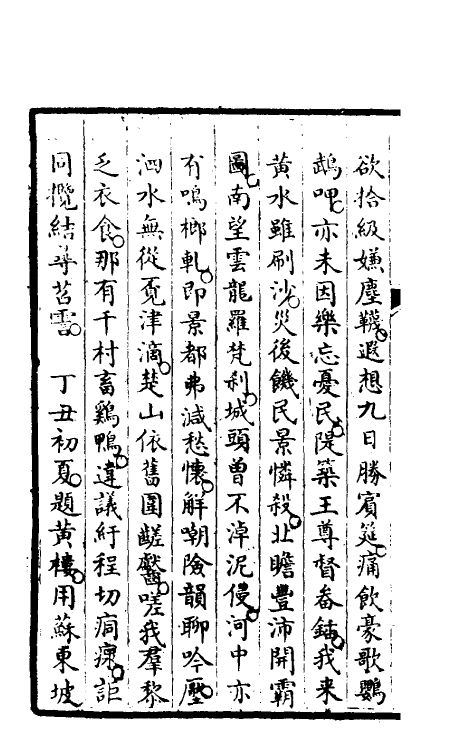 欲拾級嫌塵韈遐想九日勝賓筵痛飲豪歌鸚
鵡呷亦未因樂忘憂民隄築王尊督畚鍤我来
黄水雖刷沙災後饑民景憐殺北瞻豐沛開霸
圖南望雲龍羅梵刹城頭曾不淖泥侵河中亦
有鳴榔軋即景都弗減愁懷解嘲險韻聊吟壓
泗水無從覔津滴楚山依舊圍齹齾嗟我羣黎
乏衣食那有千村畜鷄鴨違議紓程切痌瘝詎
同攬結尋苕霅　丁丑初夏題黄樓用蘇東坡